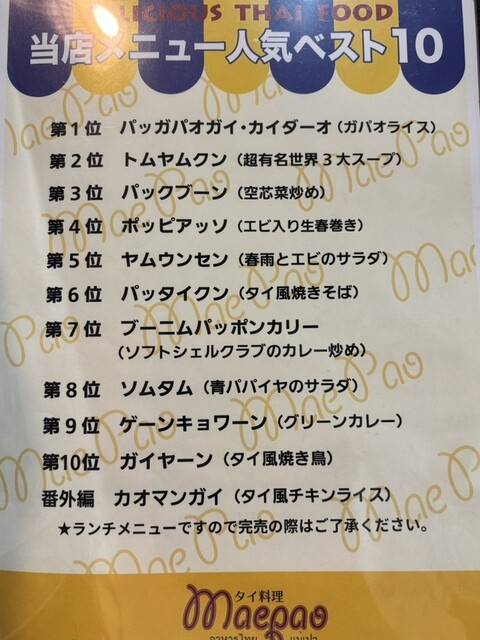 DELICIOUS THAI FOOD
当店メニュー人気ベスト10
第1位 パッガパオガイ・カイダーオ（ガパオライス）
第2位 トムヤムクン（超有名世界3大スープ）
第3位 パックブーン（空芯菜炒め）
第4位 ポッピアッソ（エビ入り生春巻き）
第5位 ヤムウンセン（春雨とエビのサラダ）
第6位 パッタイクン（タイ風焼きそば）
第7位 プーニムパッポンカリー
（ソフトシェルクラブのカレー炒め）
第8位 ソムタム（青パパイヤのサラダ）
第9位 ゲーンキョワーン（グリーンカレー）
第10位 ガイヤーン（タイ風焼き鳥）
番外編 カオマンガイ（タイ風チキンライス）
★ランチメニューですので完売の際はご了承ください。
タイ料理
maepao
อาหารไทย แม่เปา